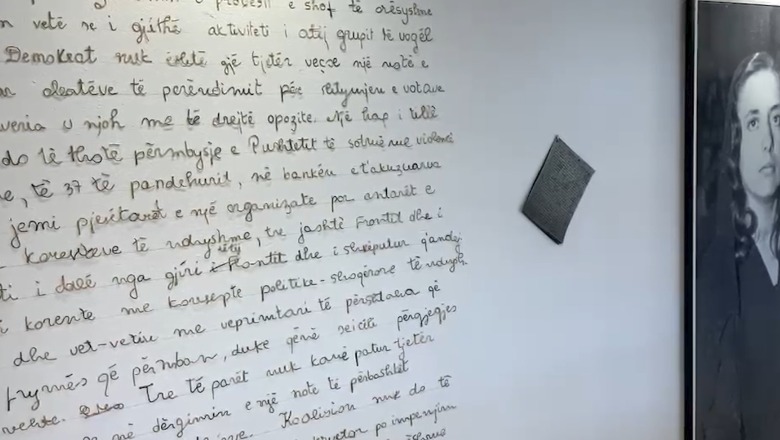 protesti e shof të arësyshme
vetë se i gjithë aktiviteti i atij grupit të vogël
Demokrat nuk është gjë tjetër veçse një notë e
aleatëve të perëndimit për shtymjen e votave
u njoh me të drejtë opozite. Një hap i tillë
do të thotë përmbysje e Pushtetit të sotmë me violencë
, të 37 të pandehurit, në bankën e t'akuzuarve
jemi pjestarët e një organizate por antarët e
korenteve të ndryshme, tre jashtë Frontit dhe i
i dalë nga gjiri i tij dhe i shkëputur q'andej
korente me konsepte politike-shoqërore të ndrysh
dhe vet-vetiu me veprimtari të përsëdala që
frymës që përmban, duke qënë seicili përgjegjës
vehte. Tre të parët nuk kanë patur tjetër
në dërgimin e një note të përbashkët
Koalision nuk do të
po impenjim